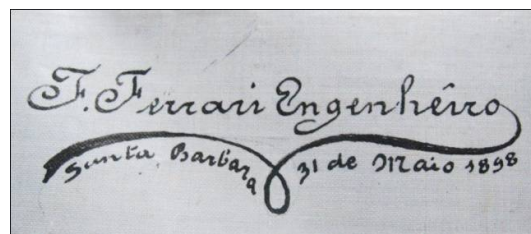 F. Ferrari Engenheiro
Santa Barbara 31 de Maio 1898